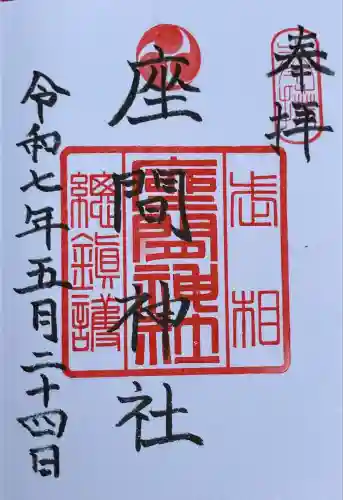 奉拝
座間神社
相武
座間神社
總鎮護
令和七年五月二十四日